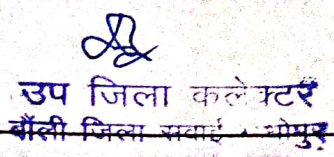 उप जिला कलेक्टर
बौंली जिला सवाई